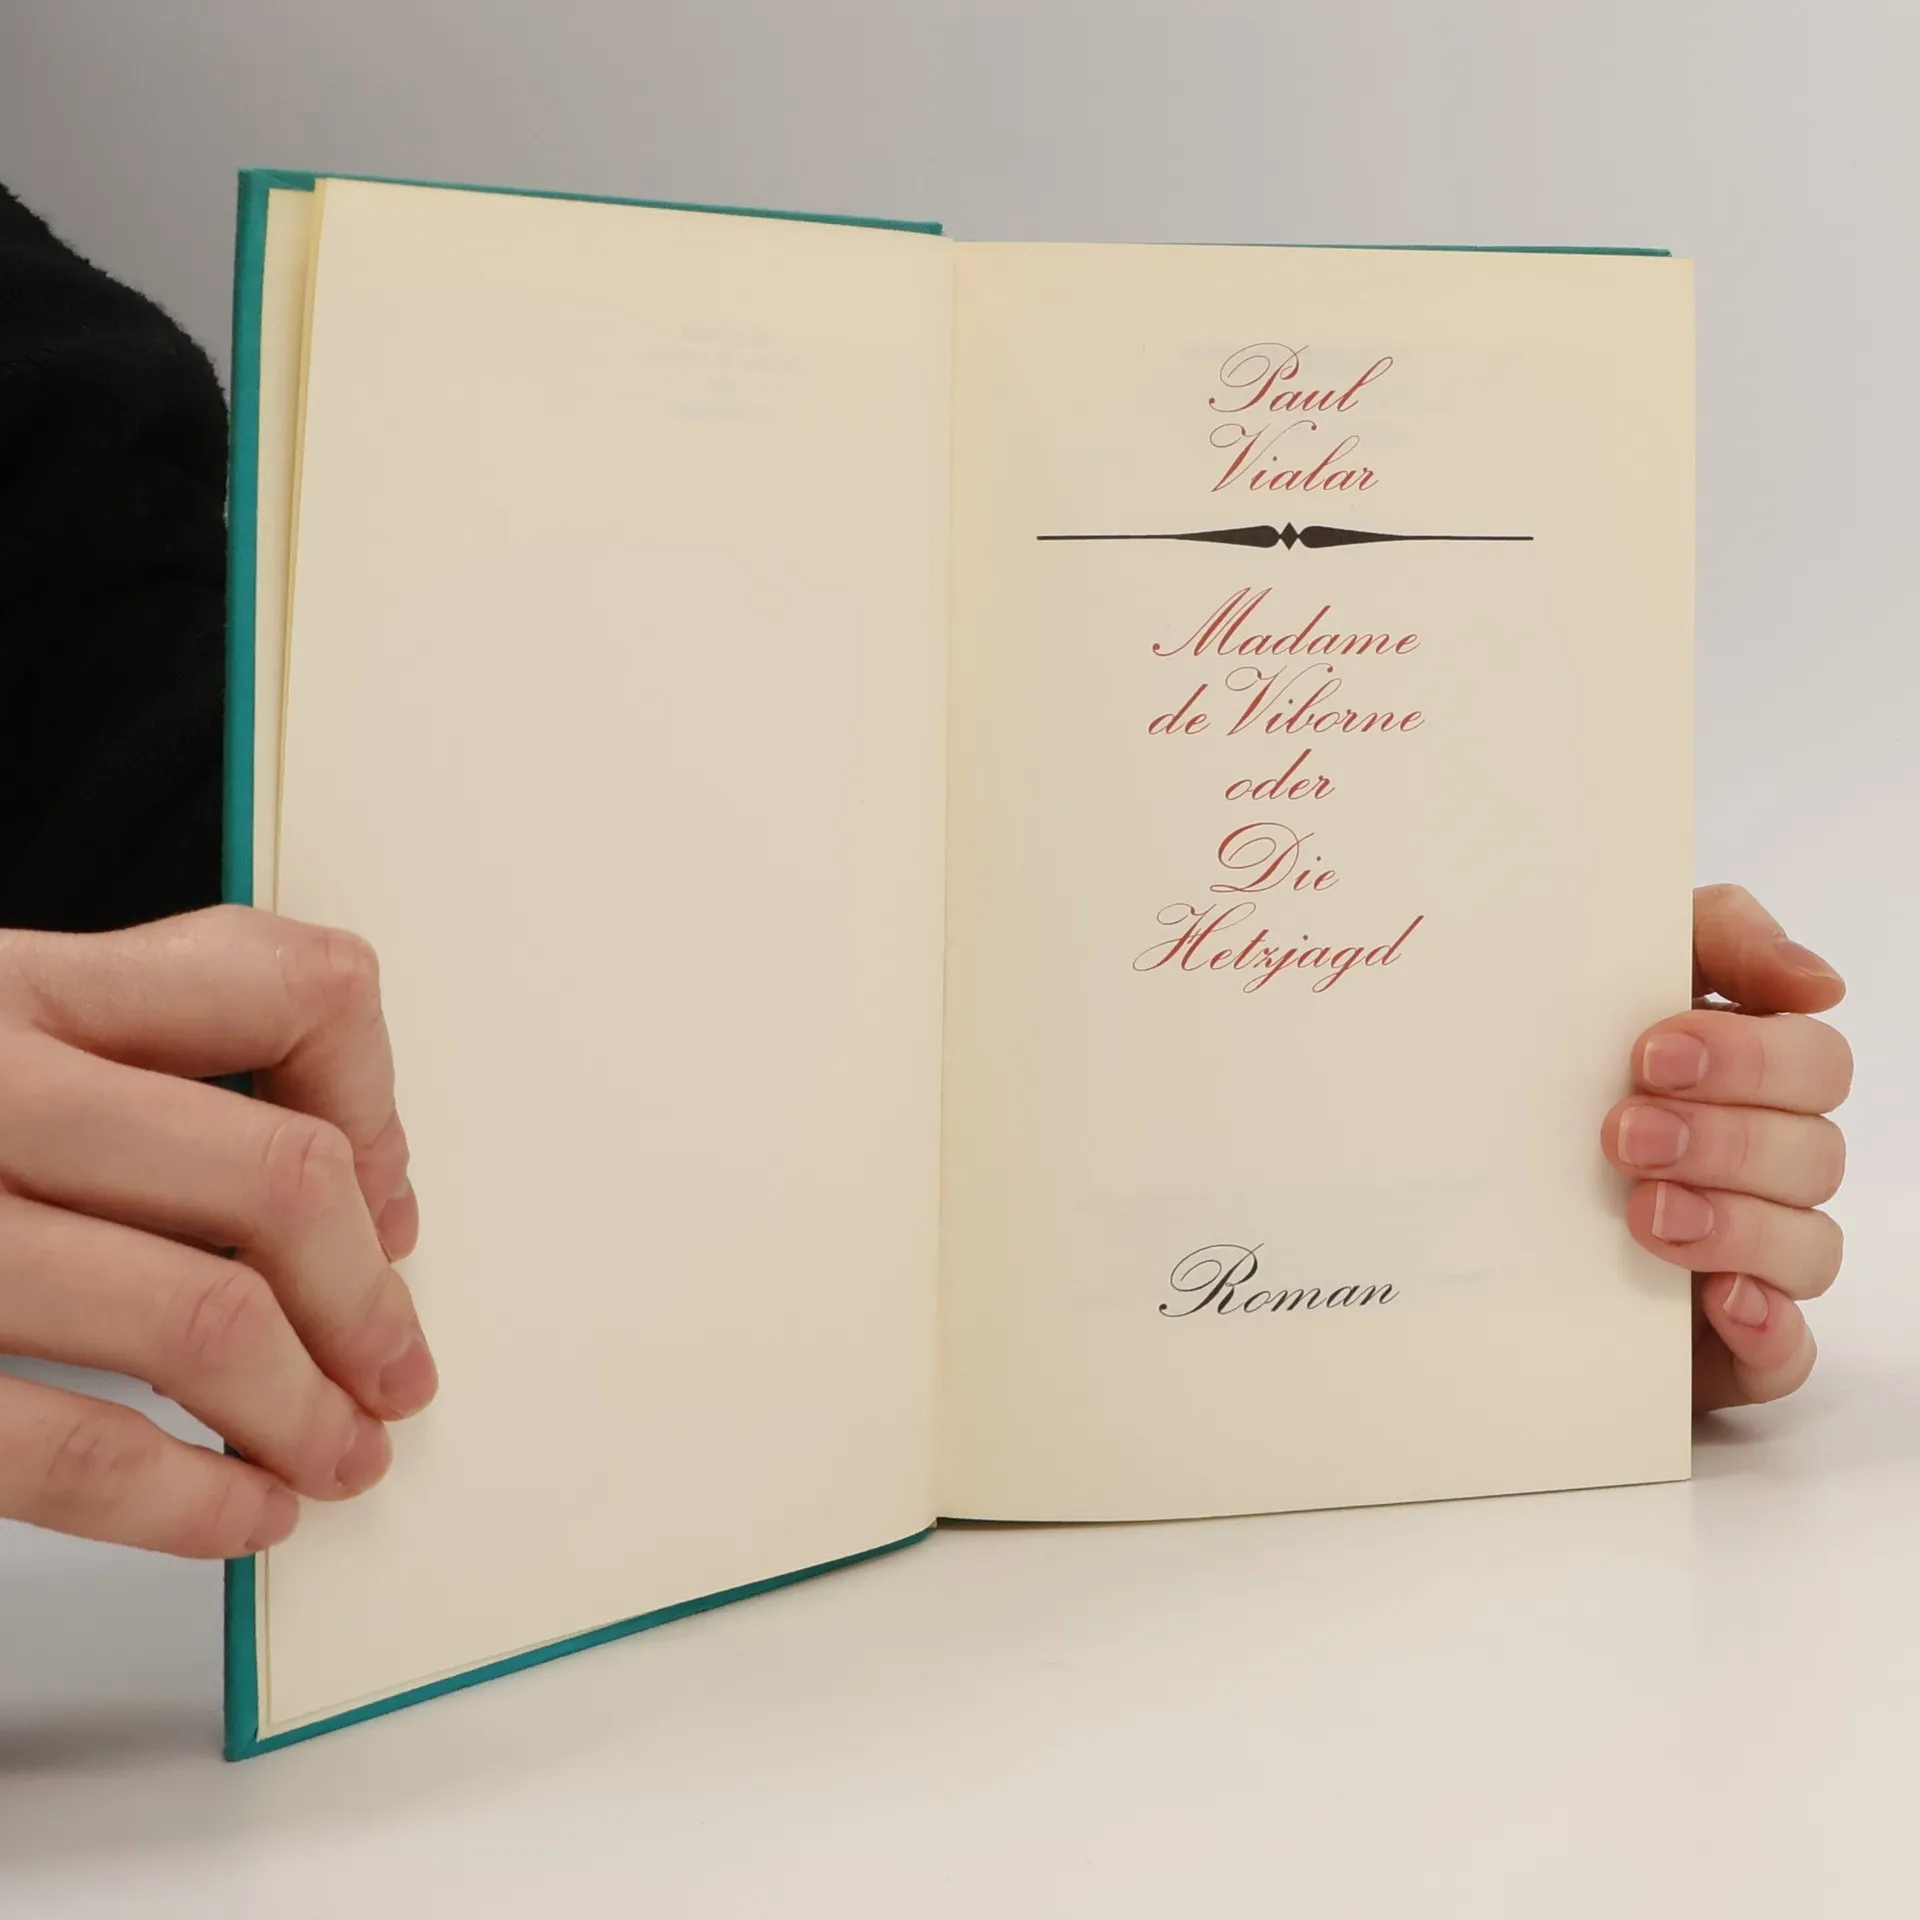 Paul
Vialar
Madame
de Viborne
oder
Die
Hetzjagd
Roman